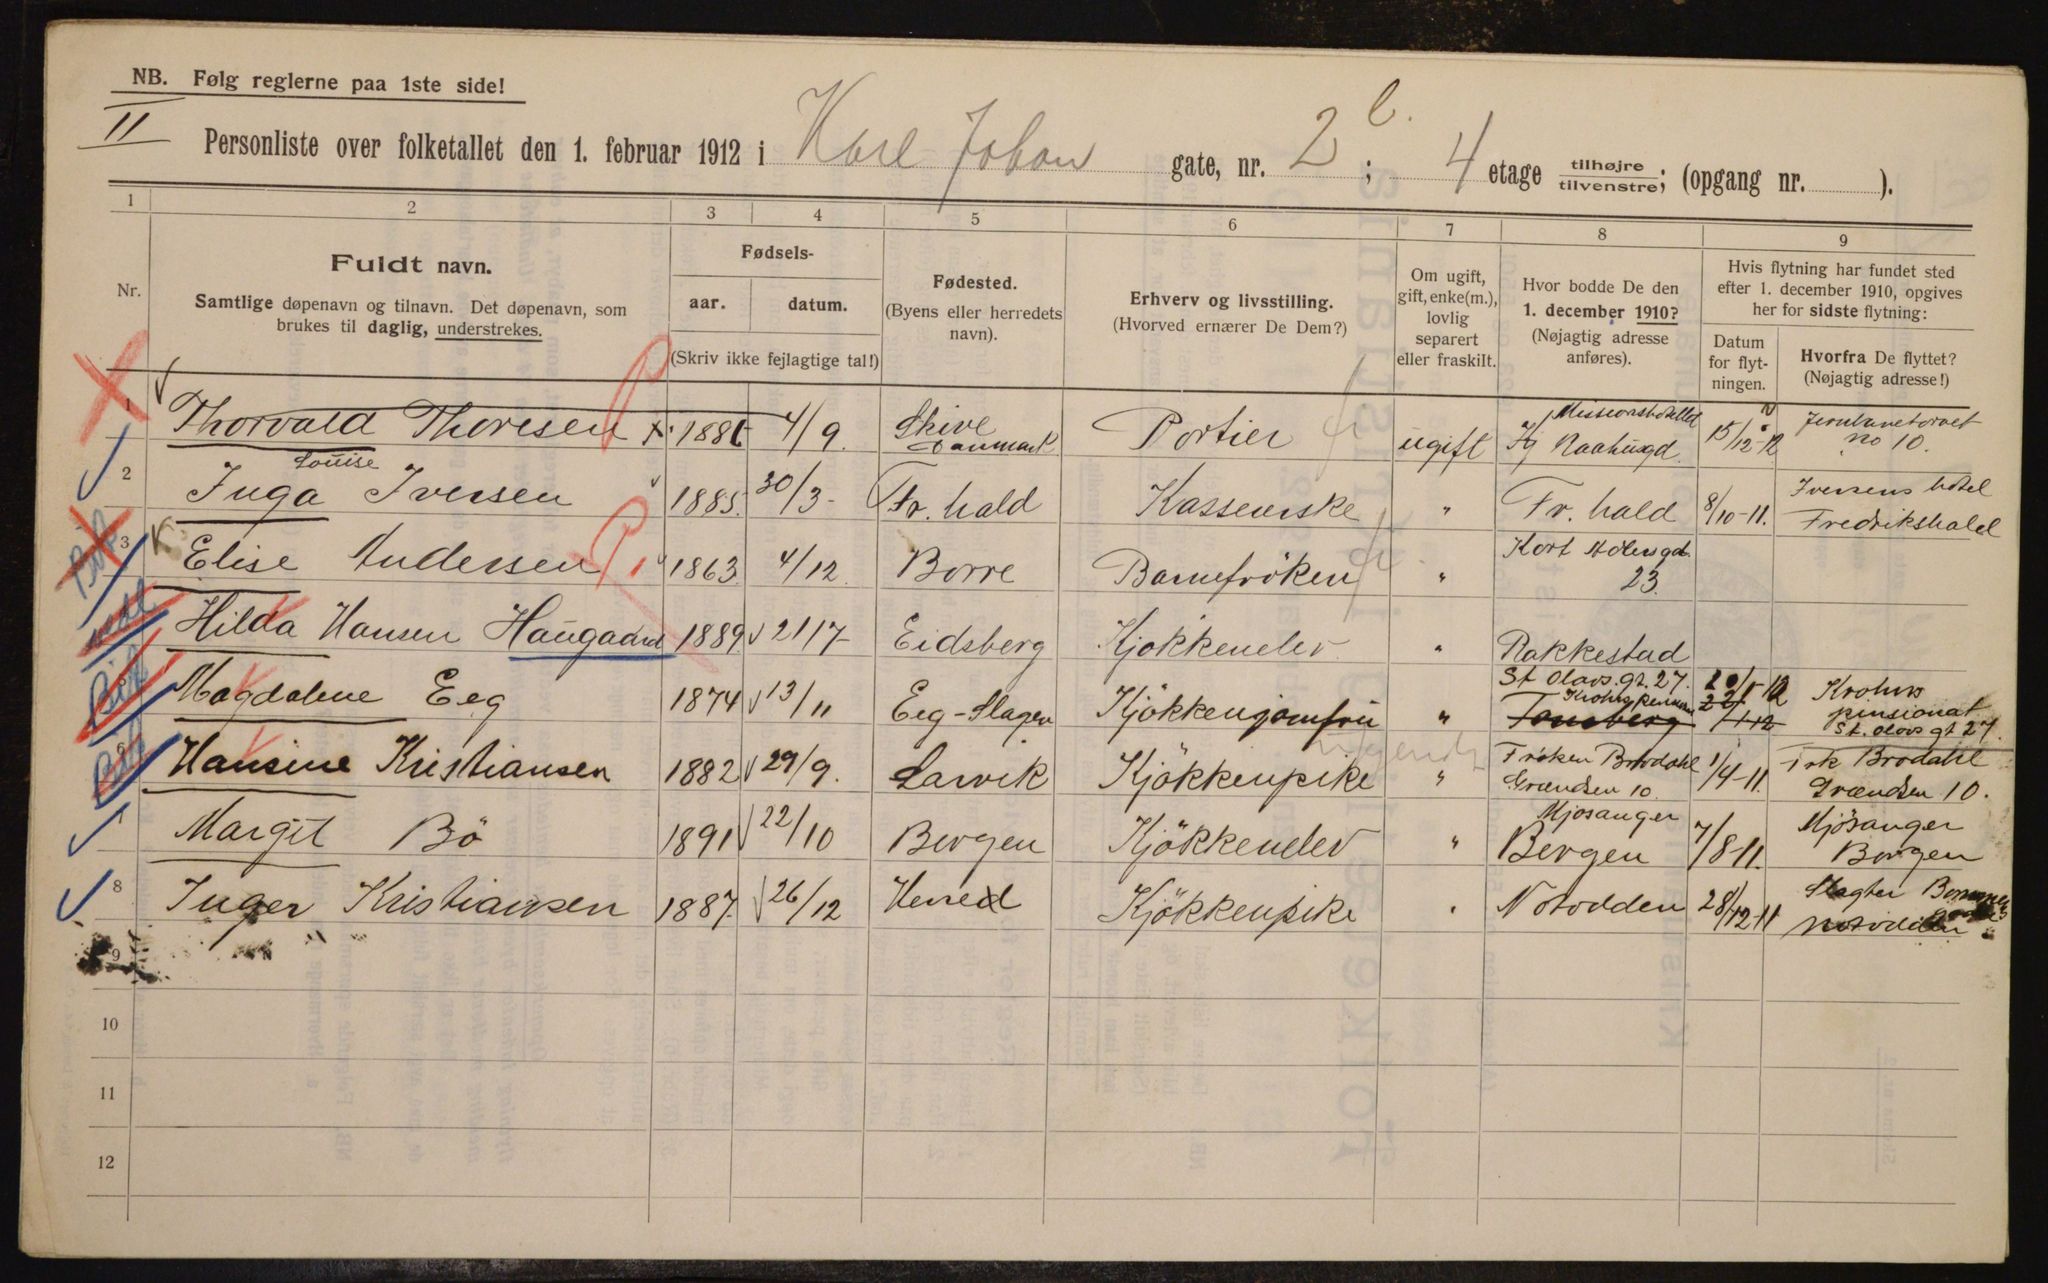 NB. Følg reglerne paa 1ste side!
II
Personliste over folketallet den 1. februar 1912 i Karl Johan gate, nr. 2 b. ; 4 etage tilhøjre tilvenstre; (opgang nr. ).
1 2 3 4 5 6 7 8 9
Nr.
Fuldt navn.
Samtlige døpenavn og tilnavn. Det døpenavn, som
brukes til daglig, understrekes.
Fødsels-
aar. datum.
(Skriv ikke fejlagtige tal!)
Fødested.
(Byens eller herredets
navn).
Erhverv og livsstilling.
(Hvorved ernærer De Dem?)
Om ugift,
gift, enke(m.),
lovlig
separert
eller fraskilt.
Hvor bodde De den
1. december 1910?
(Nøjagtig adresse
anføres).
Hvis flytning har fundet sted
efter 1. december 1910, opgives
her for sidste flytning:
Datum
for flyt-
ningen.
Hvorfra De flyttet?
(Nøjagtig adresse!)
1 Thorvald Thoresen 1886 4/9. Skive Danmark Portier ugift Missionshotellet Raahusgd. 15/12-12 Jernbanetorvet no 10.
2 Inga Louise Iversen 1885. 30/3- Fr. hald Kasserske " Fr. hald 8/10-11. Iversens hotel Fredrikshald
3 Elise Andersen 1863 4/12. Borre Barnefröken " Kort Adelersgd. 23.
Hilda Hansen Haugaard 1889 21/7- Eidsberg Kjøkkenelev " Rakkestad
Magdalene Eeg 1874 13/11 Eeg-Slagen Kjökkenjomfru " St Olavs. gt. 27. Tønsberg 20/1-12 22/1-12 Krohns pensionat St. Olavs gt 27.
6 Hansine Kristiansen 1882 29/9. Larvik Kjökkenpike " Fröken Brodahl Grændsen 10. 1/4-11. Frk Brodahl Grændsen 10.
7 Margit Bö 1891 22/10 Bergen Kjökkenelev " Mjösanger Bergen 7/8-11. Mjösanger Bergen
8 Inger Kristiansen 1887. 26/12 Kjökkenpike " Notodden 28/12-11 Slagter Notodden
9
10
11
12